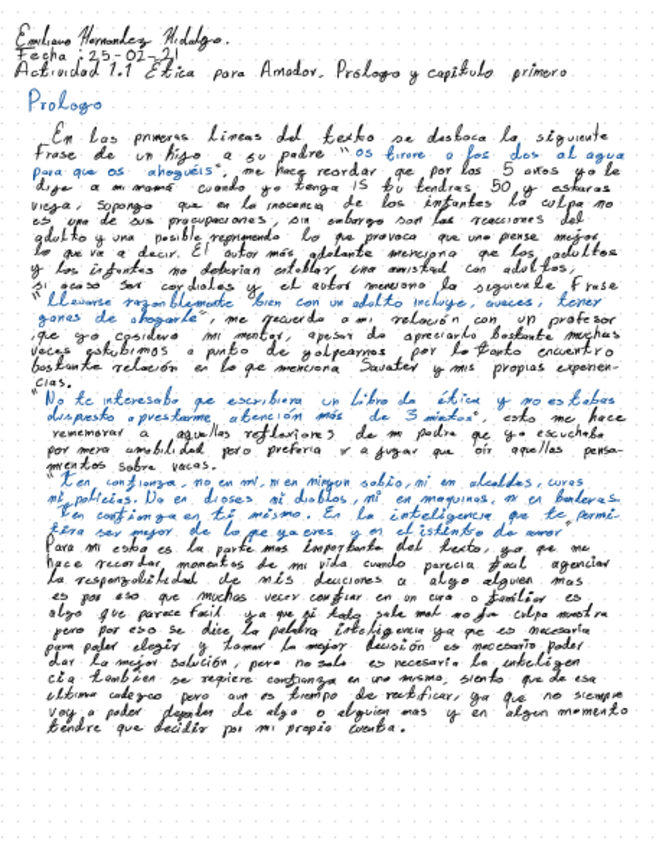 Emiliano Hernandez Hidalgo.
Fecha : 25-02-21
Actividad 1.1 Etica para Amador. Prologo y capitulo primero
Prologo
En las primeras lineas del texto se destaca la siguiente
Frase de un hijo a su padre "os tirare a los dos al agua
para que os ahoguéis", me hace recordar que por los 5 años yo le
dije a mi mamá cuando yo tenga 15 tu tendras 50 y estaras
vieja, supongo que en la inocencia de los infantes la culpa no
es una de sus preocupaciones, sin embargo son las reacciones del
adulto y una posible reprimenda lo que provoca que uno piense mejor
lo que va a decir. El autor más adelante menciona que los adultos
y los infantes no deberian entablar una amistad con adultos,
si acaso ser cordiales y el autor menciona la seguiente Frase
"Llevarse razonblemente bien con un adulto incluye, aveces, tener
ganas de ahogarle", me recuerda a mi relación con un profesor
que yo cosidero mi mentor, apesar de apreciarlo bastante muchas
veces estubimos a punto de golpearnos por lo tanto encuentro
bastante relación en lo que menciona Savater y mis propias experien-
cias.
"No te interesaba que escribiera un libro de ética y no estabas
dispesto aprestarme atención más de 3 mintos", esto me hace
rememorar a aquellas reflexiones de mi padre que yo escuchaba
por mera amabilidad pero preferia ir a jugar que oir aquellas pensa-
mientos sobre vacas.
"Ten confianza, no en mi, ni en ningun sabio, ni en alcaldes, curas
ni policias. No en dioses ni diablos, ni en maquinas, ni en banderas.
Ten confianza en ti mismo. En la inteligencia que te permi-
tira ser mejor de lo que ya eres y en el istinto de amor"
Para mi esta es la parte mas importante del texto, ya que me
hace recordar momentos de mi vida cuando parecia facil agenciar
la responzabilidad de mis deciciones a algo alguien mas
es por eso que muchas veces confiar en un cura o familiar es
algo que parece facil ya que si todo sale mal no fue culpa nuestra
pero por eso se dice la palabra inteligencia ya que es necesaria
para poder elegir y tomar la mejor decisión es necesario poder
dar la mejor solución, pero no solo es necesaria la inteligen
cia tambien se requiere confianza en uno mismo, siento que de esa
ultima caresco pero aun es tiempo de rectificar, ya que no siempre
voy a poder depender de algo o alguien mas y en algun momento
tendre que decidir por mi propia cuenta.